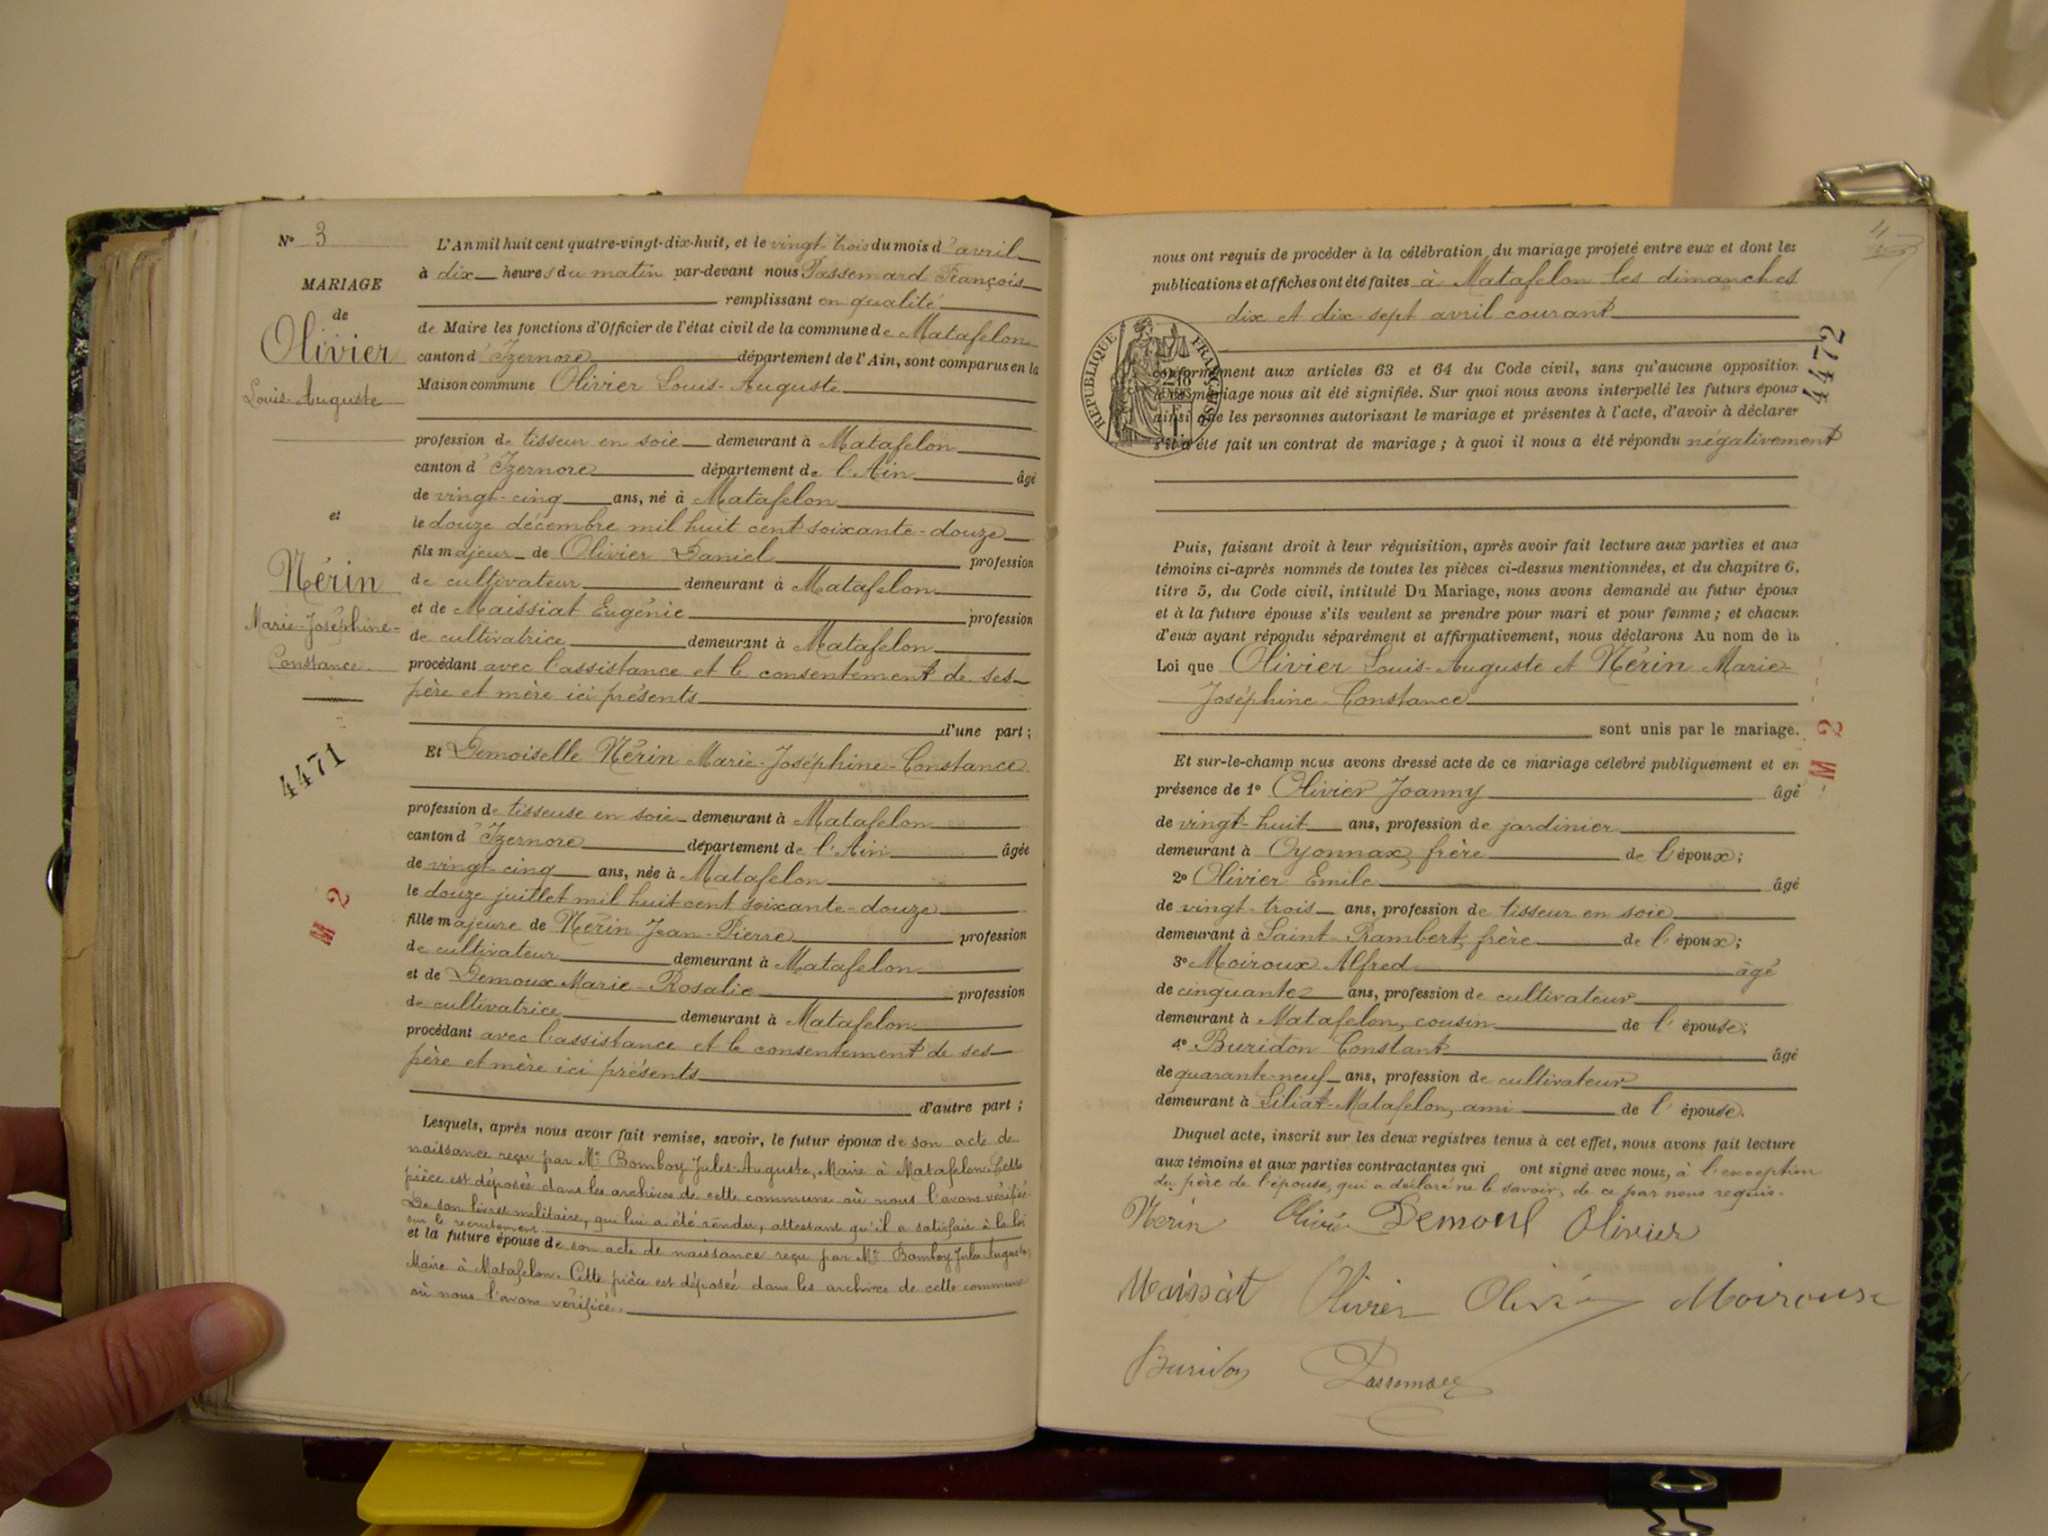 N° 3
MARIAGE
de
Olivier
Louis-Auguste
et
Nérin
Marie-Joséphine-
Constance
4471
M 2
L'An mil huit cent quatre-vingt-dix-huit, et le vingt-trois du mois d'avril
à dix heures du matin par-devant nous Passemard François
remplissant en qualité
de Maire les fonctions d'Officier de l'état civil de la commune de Matafelon
canton d'Izernore département de l'Ain, sont comparus en la
Maison commune Olivier Louis-Auguste
profession de tisseur en soie demeurant à Matafelon
canton d'Izernore département de l'Ain âgé
de vingt-cinq ans, né à Matafelon
le douze décembre mil huit cent soixante-douze
fils majeur de Olivier Daniel profession
de cultivateur demeurant à Matafelon
et de Maissiat Eugénie profession
de cultivatrice demeurant à Matafelon
procédant avec l'assistance et le consentement de ses
père et mère ici présents
d'une part;
Et Demoiselle Nérin Marie-Joséphine-Constance
profession de tisseuse en soie demeurant à Matafelon
canton d'Izernore département de l'Ain âgée
de vingt-cinq ans, née à Matafelon
le douze juillet mil huit cent soixante-douze
fille majeure de Nérin Jean-Pierre profession
de cultivateur demeurant à Matafelon
et de Demoux Marie-Rosalie profession
de cultivatrice demeurant à Matafelon
procédant avec l'assistance et le consentement de ses
père et mère ici présents
d'autre part;
Lesquels, après nous avoir fait remise, savoir, le futur époux de son acte de
naissance reçu par Mr Bomboy Jules-Auguste, Maire à Matafelon. Cette
pièce est déposée dans les archives de cette commune où nous l'avons vérifiée
De son livret militaire, qui lui a été rendu, attestant qu'il a satisfait à la loi
sur le recrutement
et la future épouse de son acte de naissance reçu par Mr Bomboy Jules-Auguste,
Maire à Matafelon. Cette pièce est déposée dans les archives de cette commune
où nous l'avons vérifiée.
nous ont requis de procéder à la célébration du mariage projeté entre eux et dont les
publications et affiches ont été faites à Matafelon les dimanches
dix et dix-sept avril courant
RÉPUBLIQUE FRANÇAISE
4472
conformément aux articles 63 et 64 du Code civil, sans qu'aucune opposition
à ce mariage nous ait été signifiée. Sur quoi nous avons interpellé les futurs époux
ainsi que les personnes autorisant le mariage et présentes à l'acte, d'avoir à déclarer
s'il a été fait un contrat de mariage; à quoi il nous a été répondu négativement
Puis, faisant droit à leur réquisition, après avoir fait lecture aux parties et aux
témoins ci-après nommés de toutes les pièces ci-dessus mentionnées, et du chapitre 6,
titre 5, du Code civil, intitulé Du Mariage, nous avons demandé au futur époux
et à la future épouse s'ils veulent se prendre pour mari et pour femme; et chacun
d'eux ayant répondu séparément et affirmativement, nous déclarons Au nom de la
Loi que Olivier Louis-Auguste et Nérin Marie-
Joséphine-Constance
sont unis par le mariage.
M 2
Et sur-le-champ nous avons dressé acte de ce mariage célébré publiquement et en
présence de 1° Olivier Joanny âgé
de vingt-huit ans, profession de jardinier
demeurant à Oyonnax, frère de l'époux;
2° Olivier Emile âgé
de vingt-trois ans, profession de tisseur en soie
demeurant à Saint-Rambert, frère de l'époux;
3° Moiroux Alfred âgé
de cinquante ans, profession de cultivateur
demeurant à Matafelon, cousin de l'épouse;
4° Buridon Constant âgé
de quarante-neuf ans, profession de cultivateur
demeurant à Siliat-Matafelon, ami de l'épouse.
Duquel acte, inscrit sur les deux registres tenus à cet effet, nous avons fait lecture
aux témoins et aux parties contractantes qui ont signé avec nous, à l'exception
du père de l'épouse, qui a déclaré ne le savoir, de ce par nous requis.
Nérin Olivier Demoul Olivier
Maissiat Olivier Olivier Moiroux
Buridon Passemard